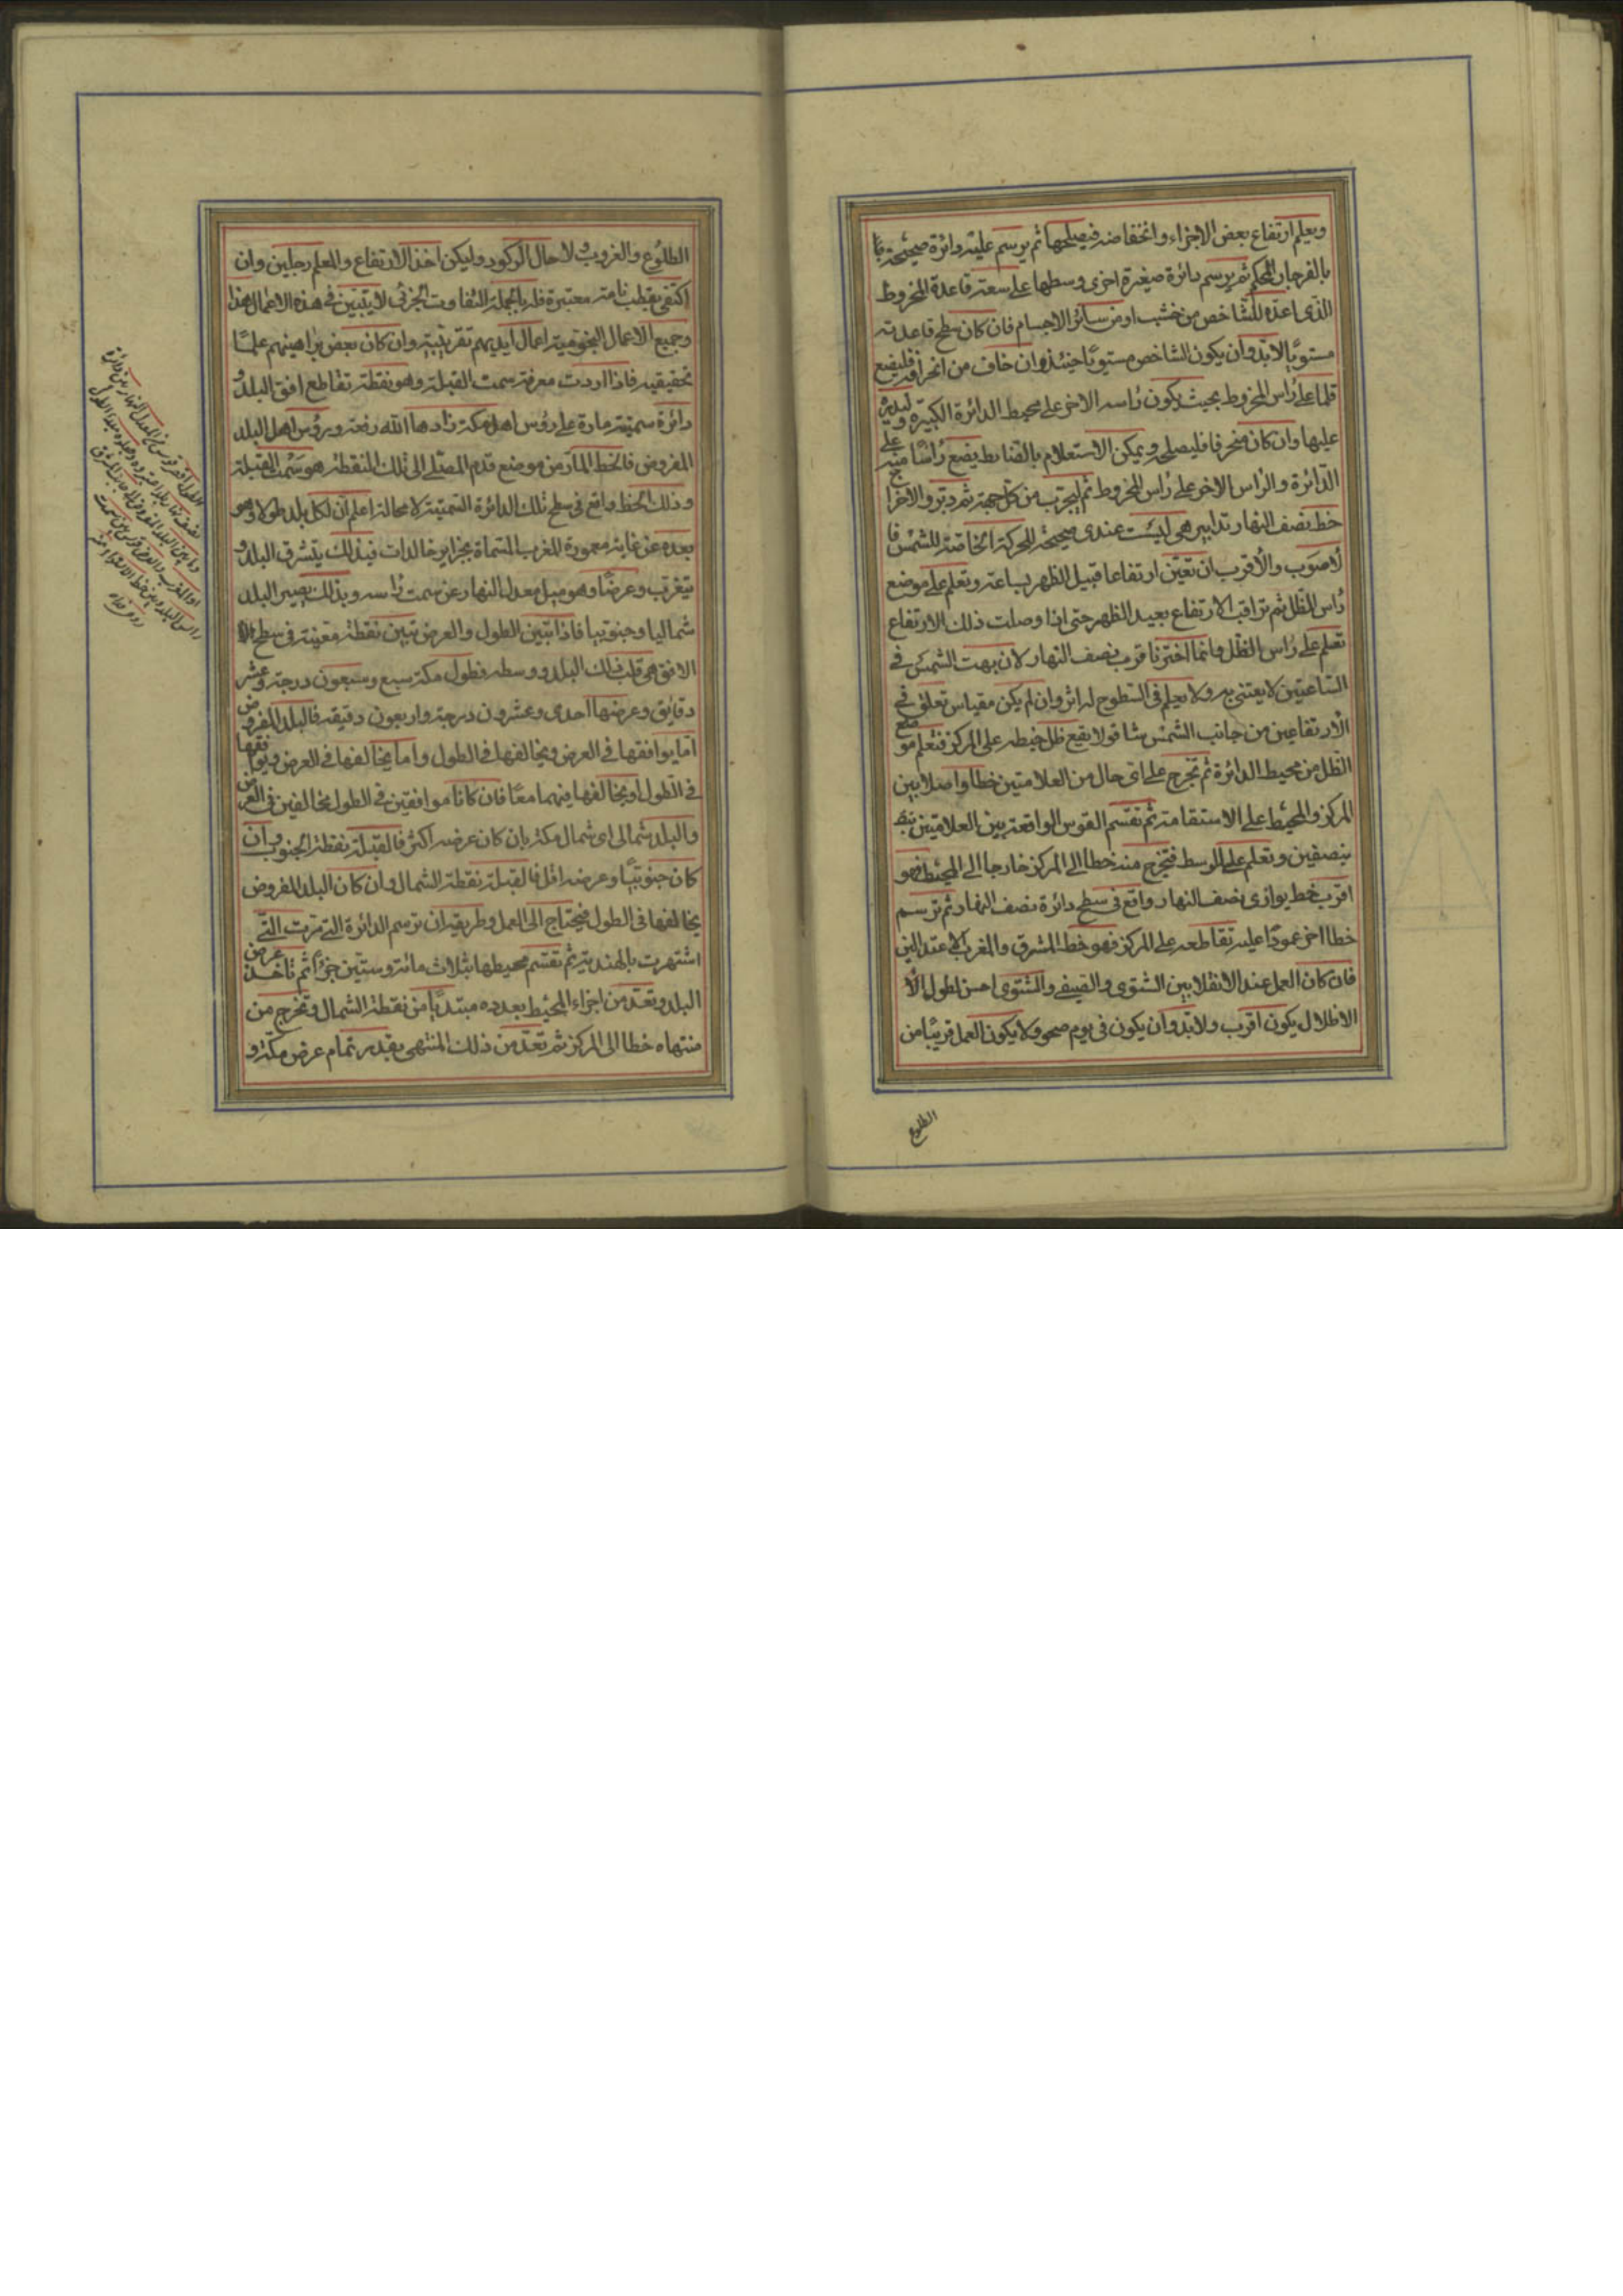 ويعلم ارتفاع بعض الاجزاء وانخفاضه فيصلحها ثم يرسم عليه دائرة صحيحة
بالفرجار المحكم ثم يرسم دائرة صغيرة اخرى وسطها على سعة قاعدة المخروط
الذى اعده للشاخص من خشب او من سائر الاجسام فان كان سطح قاعدته
مستويا لابد وان يكون الشاخص مستويا حينئذ وان خاف من انحرافه فليضع
قلما على رأس المخروط بحيث يكون رأسه الاخر على محيط الدائرة الكبيرة وليديره
عليها وان كان منحرفا فليصلحه ويمكن الاستعلام بالضابط يضع رأسا منه على
الدائرة والرأس الاخر على رأس المخروط ثم ليجرب من كل جهة ثم
خط نصف النهار تدابير هى ليست عندى صحيحة للحركة الخاصة للشمس فا
لاصوب والأقرب ان تعين ارتفاعا قبيل الظهر بساعة وتعلم على موضع
رأس الظل ثم تراقب الارتفاع بعيد الظهر حتى اذا وصلت ذلك الارتفاع
تعلم على رأس الظل وانما اخترنا قرب نصف النهار لان بهت الشمس فى
الساعتين لا يعتنى به ولا يعلم فى السطوح له اثر وان لم يكن مقياس تعلق فى
الارتفاعين من جانب الشمس شاقولا يقع ظل خيطه على المركز فتعلم موضع
الظل من محيط الدائرة ثم تخرج على اى حال من العلامتين خطا واصلا بين
المركز والمحيط على الاستقامة ثم تقسم القوس الواقعة بين العلامتين
بنصفين وتعلم على الوسط فتخرج منه خطا الى المركز خارجا الى المحيط فهو
اقرب خط يوازى نصف النهار واقع فى سطح دائرة نصف النهار ثم ترسم
خطا اخر عمودا عليه تقاطعه على المركز فهو خط المشرق والمغرب الاعتدالين
فان كان العمل عند الانقلابين الشتوى والصيفى والشتوى احسن لطول
الاظلال يكون اقرب ولابد وان يكون فى يوم صحو ولا يكون العمل قريبا من
الطلوع
الطلوع والغروب ولا حال الركود وليكن اخذ الارتفاع والمعلم رجلين وان
اكتفى بقطب نامه معتبرة فله بالجملة التفاوت الجزئى لا يتبين فى هذه الاعمال هذا
وجميع الاعمال النجومية اعمال ايديهم تقريبية وان كان بعض براهينهم علميا
تحقيقيه فاذا اردت معرفة سمت القبلة وهو نقطة تقاطع افق البلد و
دائرة سمتية مارة على رؤس اهل مكة زادها الله رفعة وبرؤس اهل البلد
المفروض فالخط المار من موضع قدم المصلى الى تلك النقطة هو سمت القبلة
وذلك الخط واقع فى سطح تلك الدائرة السمتية لا محالة اعلم ان لكل بلد طولا وهو
بعده عن غاية معمورة المغرب المسماة بجزاير خالدات فبذلك يتشرق البلد و
يتغرب وعرضا وهو ميل معدل النهار عن سمت رأسه وبذلك يصير البلد
شماليا وجنوبيا فاذا تبين الطول والعرض تبين نقطة معينة فى سطح
الافق هى قلب ذلك البلد ووسطه فطول مكة سبع وسبعون درجة وعشر
دقايق وعرضها احدى وعشرون درجة واربعون دقيقه فالبلد المفروض
اما يوافقها فى العرض ويخالفها فى الطول واما يخالفها فى العرض ويوافقها
فى الطول او يخالفها فيهما معا فان كانا موافقين فى الطول مخالفين فى العرض
والبلد شمالى اى شمال مكة بان كان عرضه اكثر فالقبلة نقطة الجنوب وان
كان جنوبيا وعرضه اقل فالقبلة نقطة الشمال وان كان البلد المفروض
يخالفها فى الطول فيحتاج الى العمل وطريقه ان ترسم الدائرة التى مرت التى
اشتهرت بالهندية ثم تقسم محيطها بثلاث مائة وستين جزءا ثم تاخذ عرض
البلد وتعد من اجزاء المحيط بعدده مبتدءا من نقطة الشمال وتخرج من
منتهاه خطا الى المركز ثم تعد من ذلك المنتهى بقدر تمام عرض مكة و